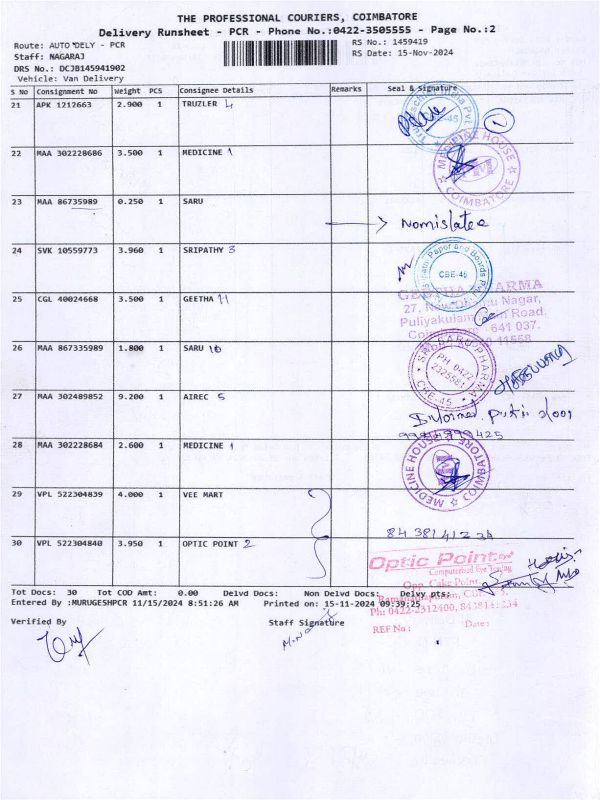 THE PROFESSIONAL COURIERS, COIMBATORE
Delivery Runsheet - PCR - Phone No.:0422-3505555 - Page No.:2
Route: AUTO DELY - PCR
RS No.: 1459419
Staff: NAGARAJ
RS Date: 15-Nov-2024
DRS No.: DCJB145941902
Vehicle: Van Delivery
S No Consignment No Weight PCS Consignee Details Remarks Seal & Signature
21 APK 1212663 2.900 1 TRUZLER 4
CBE-45
1
22 MAA 302228686 3.500 1 MEDICINE 1
MEDICINE HOUSE COIMBATORE
23 MAA 86735989 0.250 1 SARU
24 SVK 10559773 3.960 1 SRIPATHY 3
Paper and Boards
CBE-45
25 CGL 40024668 3.500 1 GEETHA 11
PHARMA
Nagar,
Road.
641 037.
26 MAA 867335989 1.800 1 SARU 10
SARU PHARMA
PH 0422
2325581
CBE-45
27 MAA 302489852 9.200 1 AIREC 5
Informed
28 MAA 302228684 2.600 1 MEDICINE 1
MEDICINE HOUSE COIMBATORE
29 VPL 522304839 4.000 1 VEE MART
30 VPL 522304840 3.950 1 OPTIC POINT 2
Optic Point
Computerised Eye Testing
Opp. Cake Point,
Ph: 0422-2312400, 8438141234
REF No : Date:
Tot Docs: 30 Tot COD Amt: 0.00 Delvd Docs: Non Delvd Docs: Delvy pts:
Entered By :MURUGESHPCR 11/15/2024 8:51:26 AM Printed on: 15-11-2024 09:39:25
Verified By Staff Signature